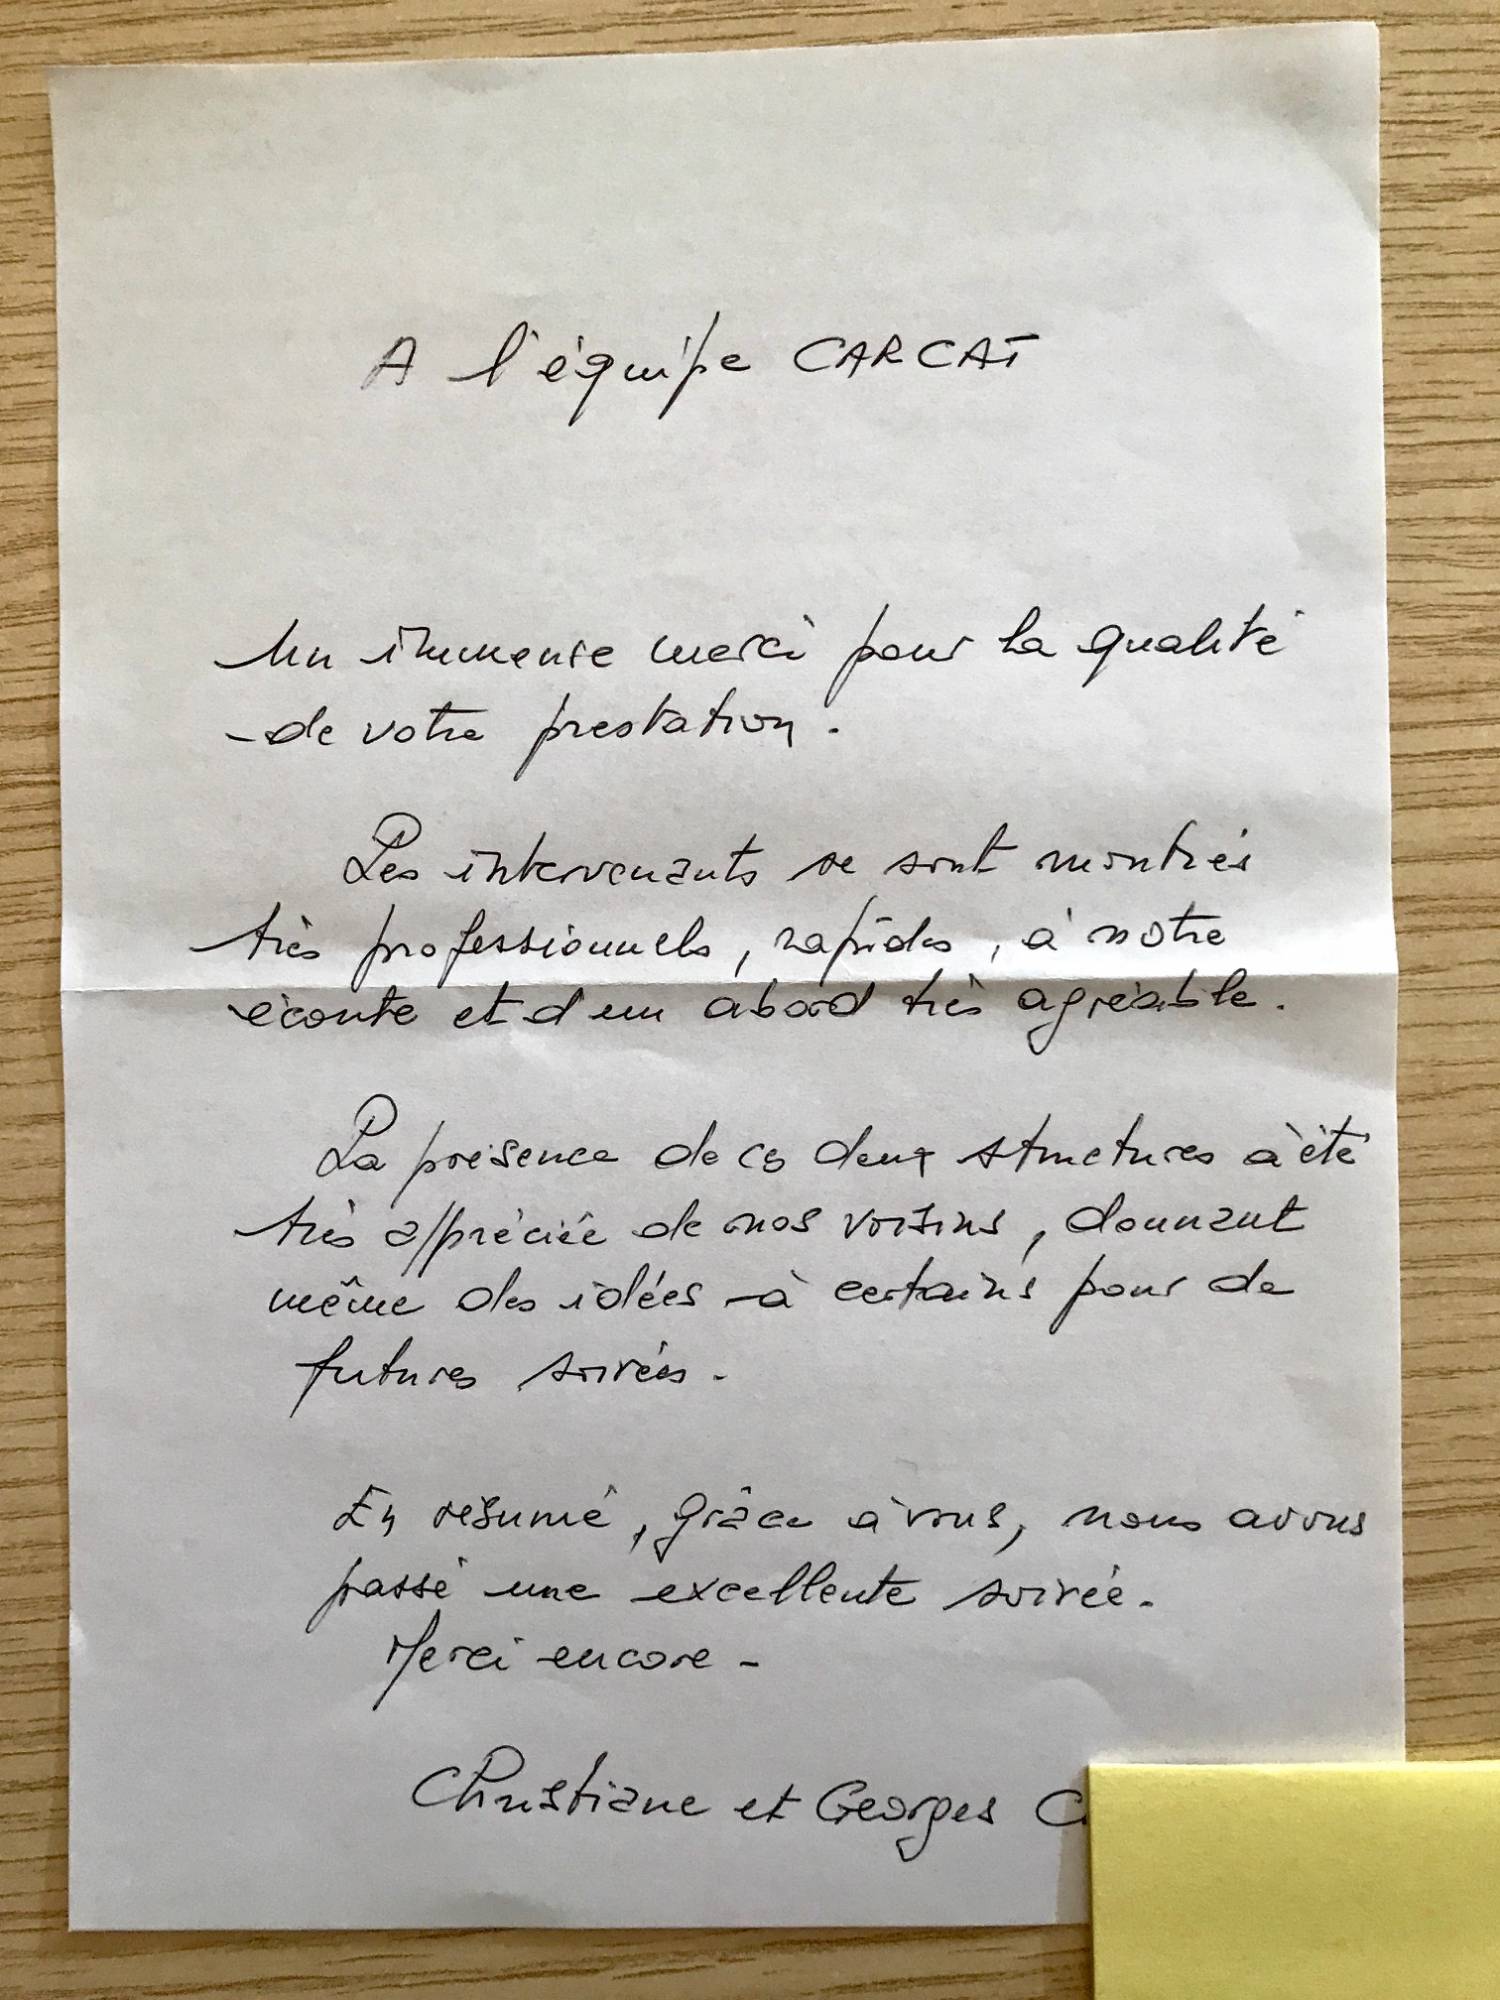 A l'équipe CARCAT
Un immense merci pour la qualité
de votre prestation.
Les intervenants se sont montrés
très professionnels, rapides, à notre
écoute et d'un abord très agréable.
La présence de ces deux structures à été
très appréciée de nos voisins, donnant
même des idées à certains pour de
futures soirées.
En résumé, grâce à vous, nous avons
passé une excellente soirée.
Merci encore -
Christiane et Georges